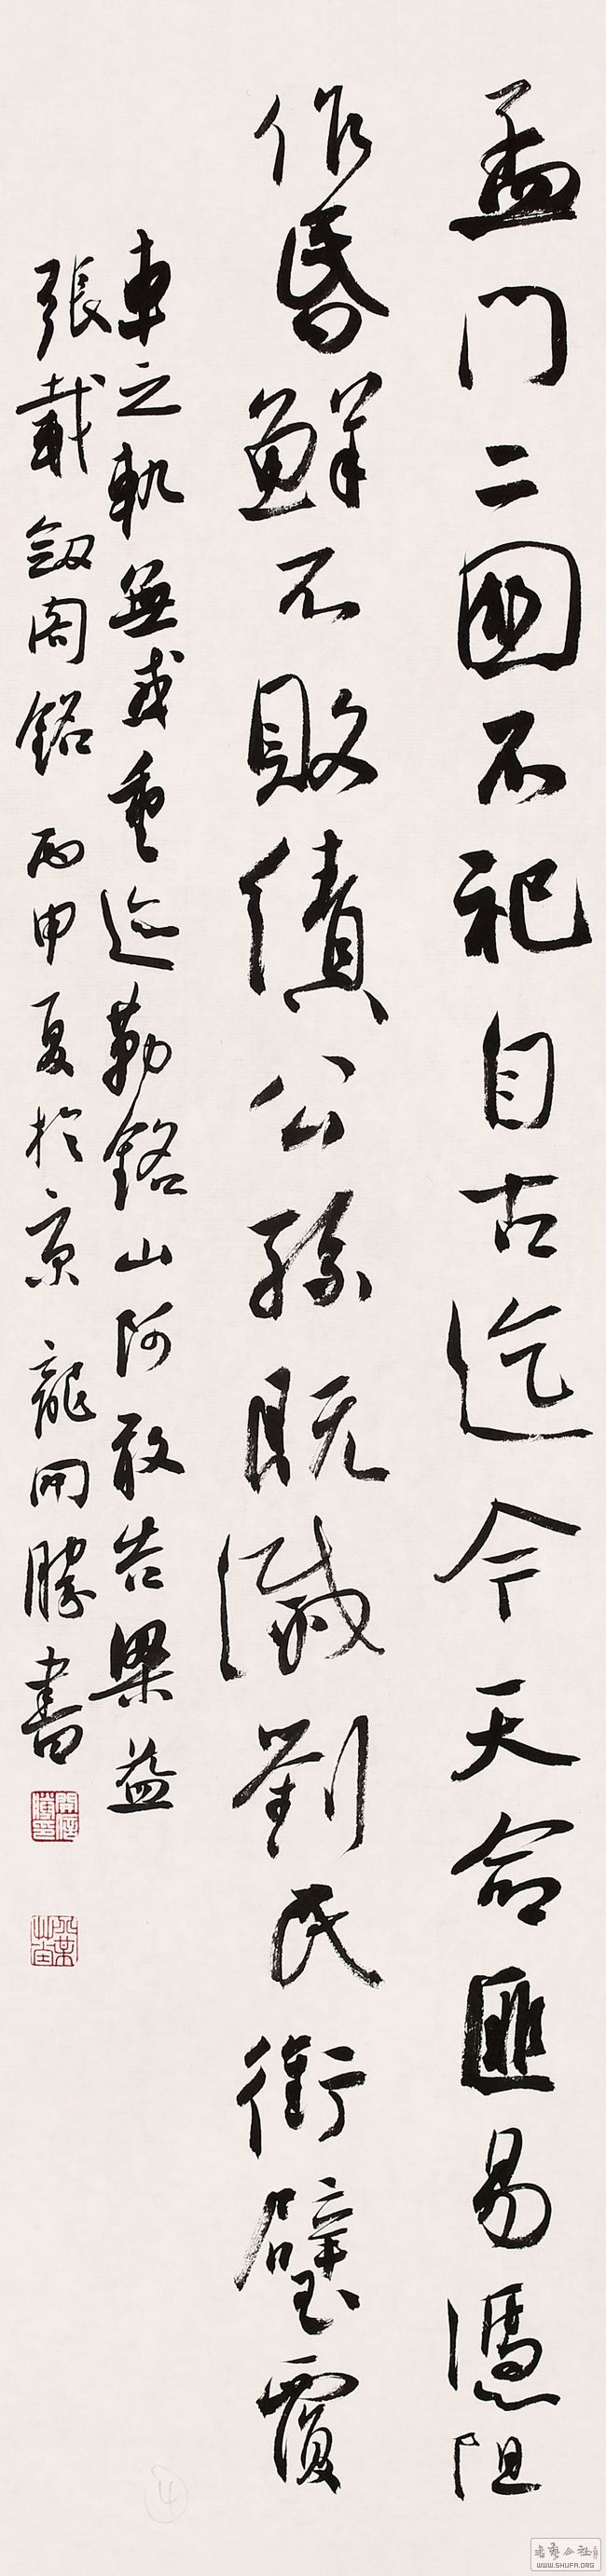 孟門二國不祀自古迄今天命匪易憑阻
作昏鮮不敗績公孫既滅劉氏銜璧覆
車之軌無或重迹勒銘山阿敢告梁益
張載劔閣銘 丙申夏於京 龍開勝書
4
WWW.SHUFA.ORG